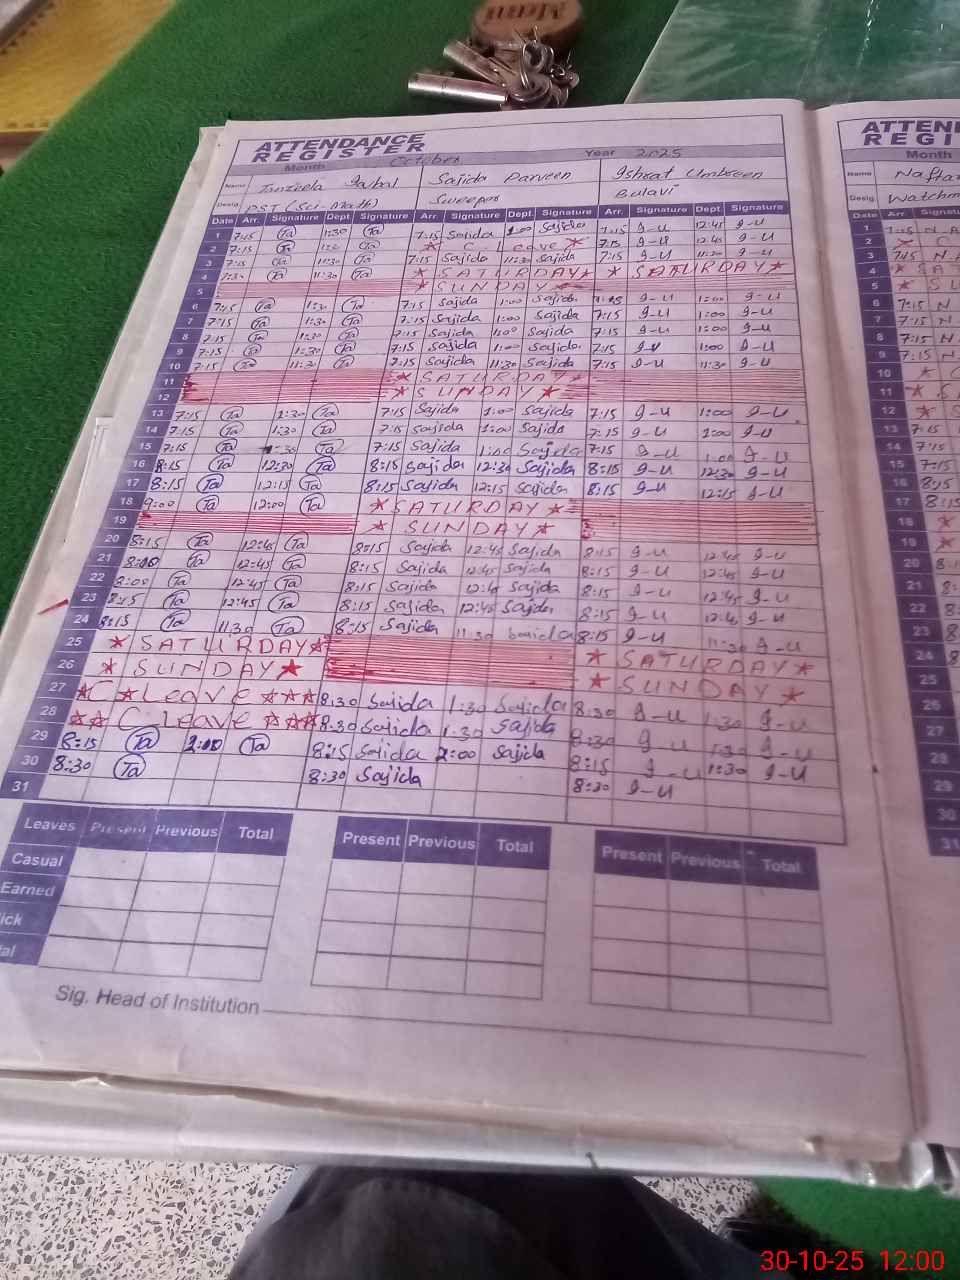 Manu
ATTENDANCE
REGISTER
Month October Year 2025
Name Tanzeela Iqbal Sajida Parveen Ishrat Umbreen
Desig. PST (Sci-Math) Sweeper Bulavi
Date Arr. Signature Dept Signature Arr. Signature Dept. Signature Arr. Signature Dept Signature
1 7:15 Ta 1:30 Ta 7:15 Sajida 1:00 Sajida 7:15 I-U 12:45 I-U
2 7:15 Ta Ta ★ C. leave ★ 7:15 I-U 12:45 I-U
3 7:15 Ta 11:30 Ta 7:15 Sajida 11:30 Sajida 7:15 I-U 11:30 I-U
4 7:30 Ta 11:30 Ta ★ SATURDAY ★ ★ SATURDAY ★
5 ★ SUNDAY ★
6 7:15 Ta 1:30 Ta 7:15 Sajida 1:00 Sajida 7:15 I-U 1:00 I-U
7 7:15 Ta 1:30 Ta 7:15 Sajida 1:00 Sajida 7:15 I-U 1:00 I-U
8 7:15 Ta 1:30 Ta 7:15 Sajida 1:00 Sajida 7:15 I-U 1:00 I-U
9 7:15 Ta 1:30 Ta 7:15 Sajida 1:00 Sajida 7:15 I-U 1:00 I-U
10 7:15 Ta 11:30 Ta 7:15 Sajida 11:30 Sajida 7:15 I-U 11:30 I-U
11 ★ SATURDAY ★
12 ★ SUNDAY ★
13 7:15 Ta 1:30 Ta 7:15 Sajida 1:00 Sajida 7:15 I-U 1:00 I-U
14 7:15 Ta 1:30 Ta 7:15 Sajida 1:00 Sajida 7:15 I-U 1:00 I-U
15 7:15 Ta 1:30 Ta 7:15 Sajida 1:00 Sajida 7:15 I-U 1:00 I-U
16 8:15 Ta 12:30 Ta 8:15 Sajida 12:30 Sajida 8:15 I-U 12:30 I-U
17 8:15 Ta 12:15 Ta 8:15 Sajida 12:15 Sajida 8:15 I-U 12:15 I-U
18 9:00 Ta 12:00 Ta ★ SATURDAY ★
19 ★ SUNDAY ★
20 8:15 Ta 12:45 Ta 8:15 Sajida 12:45 Sajida 8:15 I-U 12:45 I-U
21 8:00 Ta 12:45 Ta 8:15 Sajida 12:45 Sajida 8:15 I-U 12:45 I-U
22 8:00 Ta 12:45 Ta 8:15 Sajida 12:45 Sajida 8:15 I-U 12:45 I-U
23 8:15 Ta 12:45 Ta 8:15 Sajida 12:45 Sajida 8:15 I-U 12:45 I-U
24 8:15 Ta 11:30 Ta 8:15 Sajida 11:30 Sajida 8:15 I-U 11:30 I-U
25 ★ SATURDAY ★ ★ SATURDAY ★
26 ★ SUNDAY ★ ★ SUNDAY ★
27 ★ C ★ Leave ★★★ 8:30 Sajida 1:30 Sajida 8:30 I-U 1:30 I-U
28 ★★ C. Leave ★★★ 8:30 Sajida 1:30 Sajida 8:30 I-U 1:30 I-U
29 8:15 Ta 2:00 Ta 8:15 Sajida 2:00 Sajida 8:15 I-U 1:30 I-U
30 8:30 Ta 8:30 Sajida 8:30 I-U
31
Leaves Present Previous Total Present Previous Total Present Previous Total
Casual
Earned
ick
al
Sig. Head of Institution
ATTEN
REGI
Month
Name Nafta
Desig. Watchm
Date Arr. Signatu
1 7:15 N-A
2 ★ C
3 7:15 N-A
4 ★ SA
5 ★ SU
6 7:15 N
7 7:15 N
8 7:15 N
9 7:15 N
10 ★
11 ★ S
12 ★ S
13 7:15
14 7:15
15 7:15
16 8:15
17 8:15
18 ★
19 ★
20 8:1
21 8:
22 8:
23 8
24 8
25
26
27
28
29
30
31
30-10-25 12:00